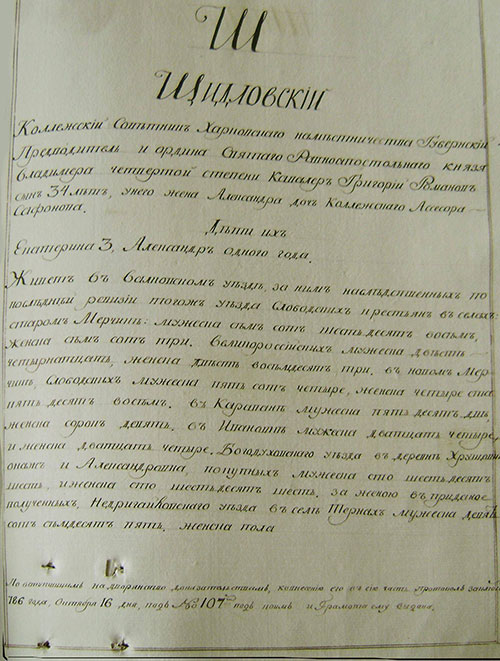 Ш
Шидловскій
Коллежскій Совѣтникъ Харковскаго намѣстничества Губернскій
Предводитель и ордина Святаго Равноапостольнаго князя
Владимера четвертой степени Кавалеръ Григорій Романовъ
сынъ 34 лѣтъ, унего жена Александра дочь Коллежскаго Асесора
Сафонова.
Дѣти ихъ
Екатерина 3, Александръ одного года.
Живетъ въ Валковскомъ уѣздѣ, за нимъ наслѣдственныхъ по
послѣдней ревизіи тогожъ уѣзда Слободскихъ крестьянъ въ селахъ
старомъ Мерчикѣ: мужеска семъ сотъ шестьдесятъ восемъ,
женска семъ сотъ три. Великороссійскихъ мужеска двѣсти
четырнатцать, женска двѣсти восемьдесятъ три. въ новомъ Мер
чикѣ, Слободскихъ мужеска пять сотъ четыре, женска четыре ста
пять десятъ восемъ. въ Караванѣ мужеска пять десятъ два,
женска сорокъ девять. въ Ивановкѣ мужеска дватцать четыре,
и женска дватцать четыре. Богодуховскаго уѣзда въ деревнѣ
онажъ и Александровка, купчихъ мужеска сто шестьдесятъ
шесть, и женска сто шестьдесятъ шесть. за женою въ приданое
полученныхъ, Недригайловскаго уѣзда въ селѣ Тернахъ мужеска девять
сотъ семдесятъ пять. женска пола
По вступившимъ на дворянство доказательствамъ, внесенію его въ ею часть протоколъ
786 года, Октября 16 дня, подъ № 107 подъ коимъ и Грамота ему выдана.